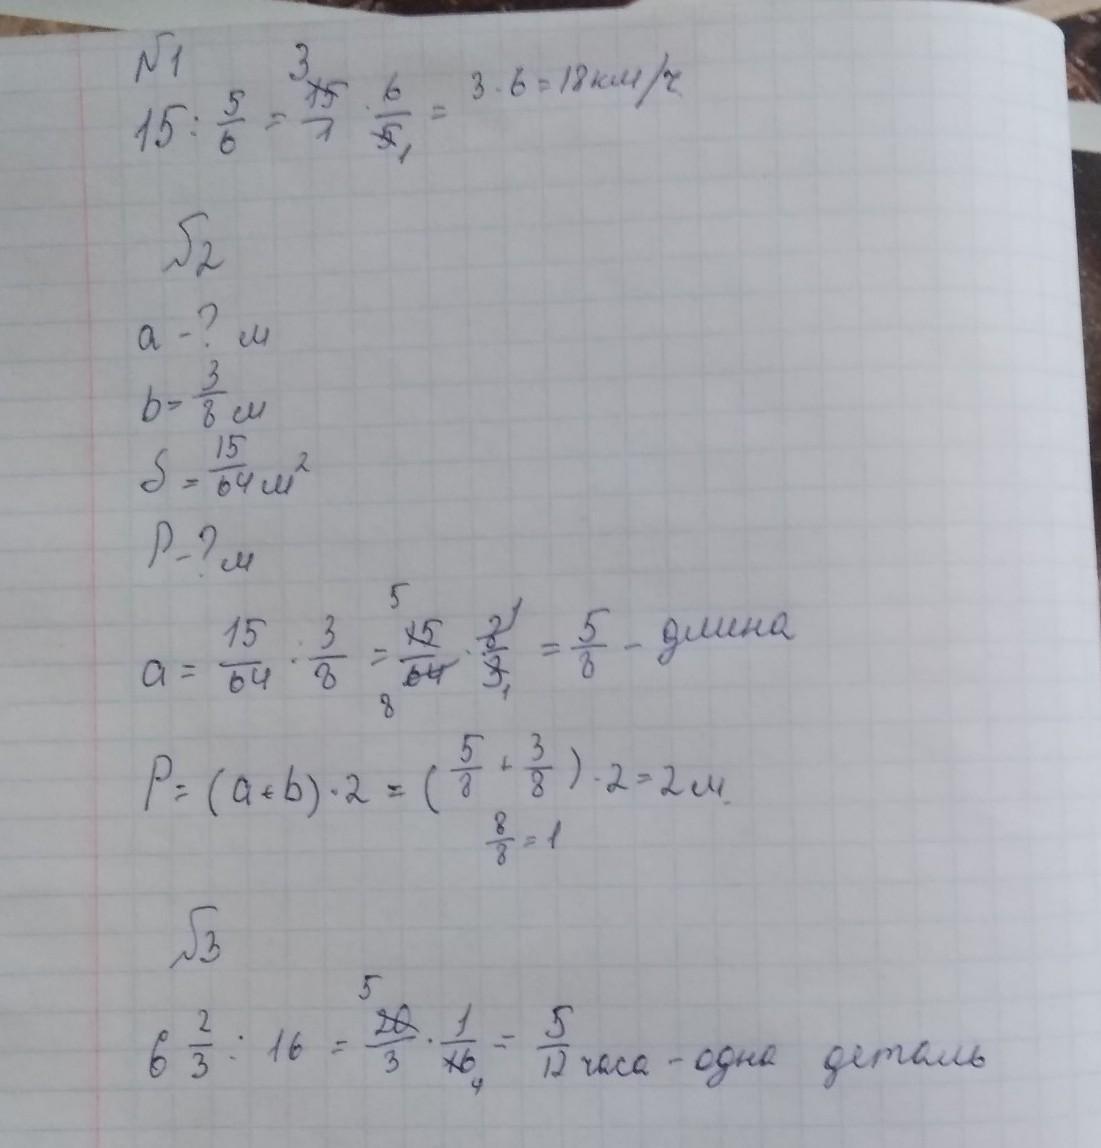 №1
15 : 5/6 = 15/1 · 6/5 = 3 · 6 = 18 км/ч
3 1
№2
a - ? м
b = 3/8 м
S = 15/64 м²
P - ? м
a = 15/64 : 3/8 = 15/64 · 8/3 = 5/8 - длина
5 8 1 1
P = (a + b) · 2 = (5/8 + 3/8) · 2 = 2 м.
8/8 = 1
№3
6 2/3 : 16 = 20/3 · 1/16 = 5/12 часа - одна деталь
5 4